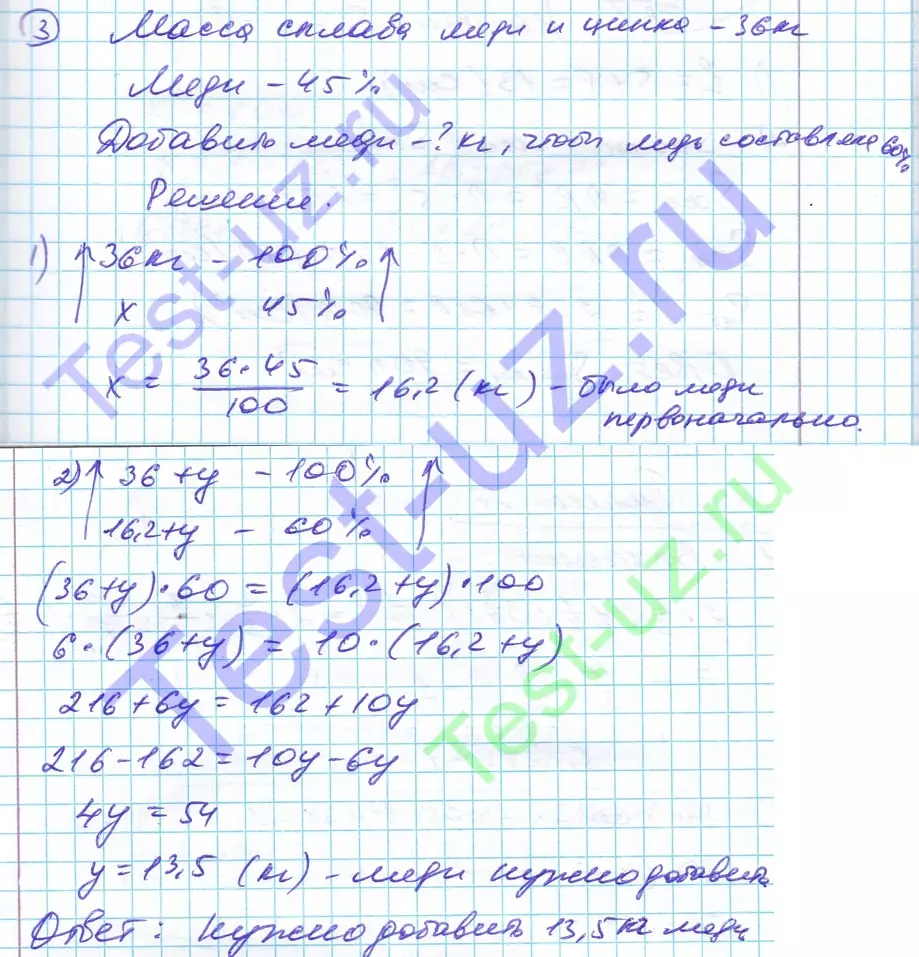 3 Масса сплава меди и цинка – 36 кг
Меди – 45%
Добавить меди – ? кг, чтобы медь составляла 60%
Решение.
1) 36 кг – 100%
x 45%
x = 36·45/100 = 16,2 (кг) – было меди
первоначально.
2) 36 + y – 100%
16,2 + y – 60%
(36+y)·60 = (16,2+y)·100
6·(36+y) = 10·(16,2+y)
216 + 6y = 162 + 10y
216 – 162 = 10y – 6y
4y = 54
y = 13,5 (кг) – меди нужно добавить
Ответ: Нужно добавить 13,5 кг меди
Test-uz.ru
Test-uz.ru
Test-uz.ru